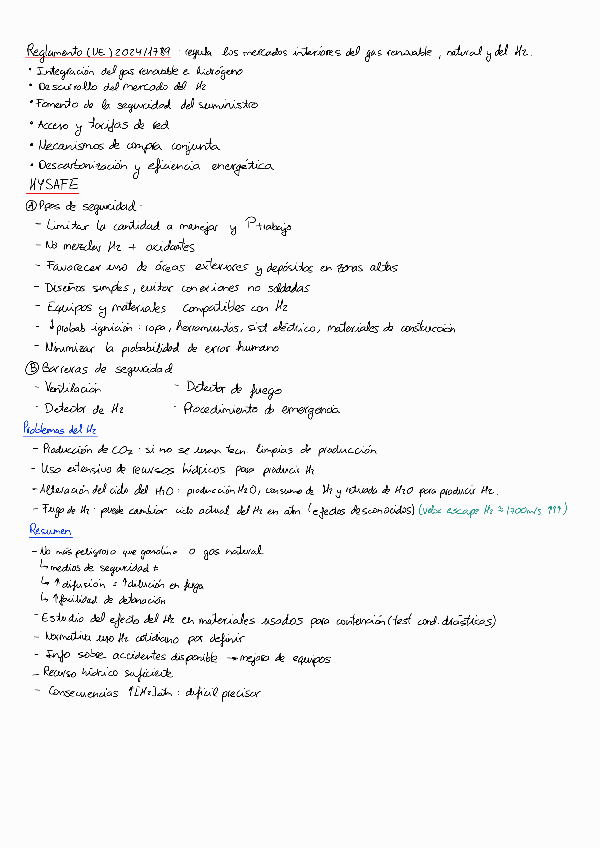 Reglamento (UE) 2024/1789 : regula los mercados interiores del gas renovable, natural y del H2.
• Integración del gas renovable e hidrógeno
• Desarrollo del mercado del H2
• Fomento de la seguridad del suministro
• Acceso y tarifas de red
• Mecanismos de compra conjunta
• Descarbonización y eficiencia energética
HYSAFE
Ⓐ Ppos de seguridad:
- Limitar la cantidad a manejar y Ptrabajo
- No mezclar H2 + oxidantes
- Favorecer uso de áreas exteriores y depósitos en zonas altas
- Diseños simples, evitar conexiones no soldadas
- Equipos y materiales compatibles con H2
- ↓probab ignición: ropa, herramientas, sist eléctrico, materiales de construcción
- Minimizar la probabilidad de error humano
Ⓑ Barreras de seguridad
- Ventilación - Detector de fuego
- Detector de H2 - Procedimiento de emergencia
Problemas del H2
- Producción de CO2: si no se usan tecn. limpias de producción
- Uso extensivo de recursos hídricos para producir H2
- Alteración del ciclo del H2O: producción H2O, consumo de H2 y retirada de H2O para producir H2.
- Fuga de H2: puede cambiar ciclo actual del H2 en atm (efectos desconocidos) (veloc escape H2 ≈ 1700m/s !!!)
Resumen
- No más peligroso que gasolina o gas natural
↳ medios de seguridad ≠
↳ ↑ difusión = ↑dilución en fuga
↳ ↑facilidad de detonación
- Estudio del efecto del H2 en materiales usados para contención (test cond. drásticas)
- Normativa uso H2 cotidiano por definir
- Info sobre accidentes disponible → mejora de equipos
- Recurso hídrico suficiente
- Consecuencias ↑[H2]atm : difícil precisar